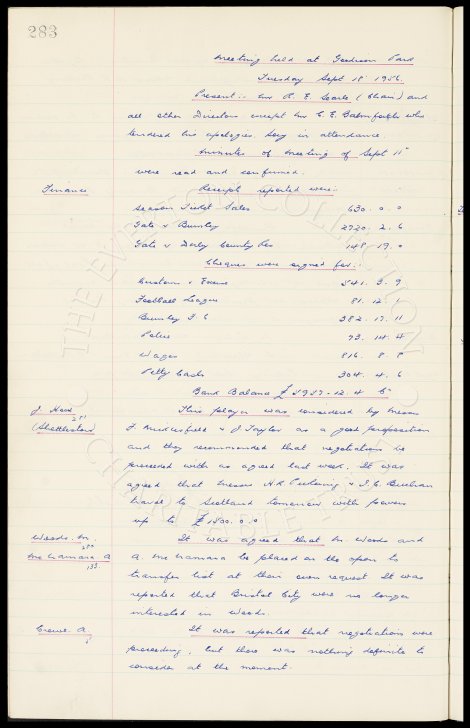 283
Meeting held at Goodison Park
Tuesday Sept 18 1956.
Present :- Mr R. E. Searle (Chair) and
all other Directors except Mr C. E. Balmforth who
tendered his apologies. Secy in attendance.
Minutes of Meeting of Sept 11th
were read and confirmed.
Finance Receipts reported were :-
Season Ticket Sales 630. 0. 0
Gate v Burnley 2920. 2. 6
Gate v Derby County Res 148. 19. 0
Cheques were signed for :-
Customs & Excise 541. 3. 9
Football League 81. 12. 1
Burnley F.C 382. 17. 11
Police 73. 14. 4
Wages 816. 8. 8
Petty Cash 304. 4. 6
Bank Balance £ 5957-12. 4
J. This player was considered by Messrs
281
(Shettleston) F. & J Taylor as a good proposition
and they recommended that negotiations be
proceeded with as agreed last week. It was
agreed that Messrs H.R. Pickering & I. C. Buchan
travel to Scotland tomorrow with powers
up to £ 1500. 0. 0
Woods. M. It was agreed that M. Woods and
280
McNamara. A A. McNamara be placed on the open to
133
transfer list at their own request It was
reported that Bristol City were no longer
interested in Woods.
Crewe. A. It was reported that negotiations were
proceeding, but there was nothing definite to
consider at the moment.
THE EVERTON COLLECTION
CHARITABLE TRUST